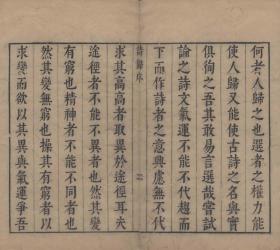 何者人歸之也選者之權力能
使人歸又能使古詩之名與實
俱徇之吾其敢易言選哉嘗試
論之詩文氣運不能不代趨而
下而作詩者之意興慮無不代
求其高高者取異於途徑耳夫
途徑者不能不異者也然其變
有窮也精神者不能不同者也
然其變無窮也操其有窮者以
求變而欲以其異與氣運爭吾
詩歸序